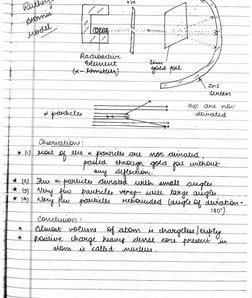 Rutherford
atomic
model
Radioactive
element
(α-emitters)
thin
gold foil
ZnS
screen
α particles
are not
deviated
Observation :
* (1) most of the α particles are not deviated,
passed through gold foil without
any deflection.
* (2) Few α-particles deviated with small angles.
* (3) Very few particles with large angles.
* (4) Very few particles rebounded (angle of deviation =
180°)
Conclusion :
* Almost volume of atom is chargeless/empty
* positive charge heavy dense core present in
atom is called nucleus